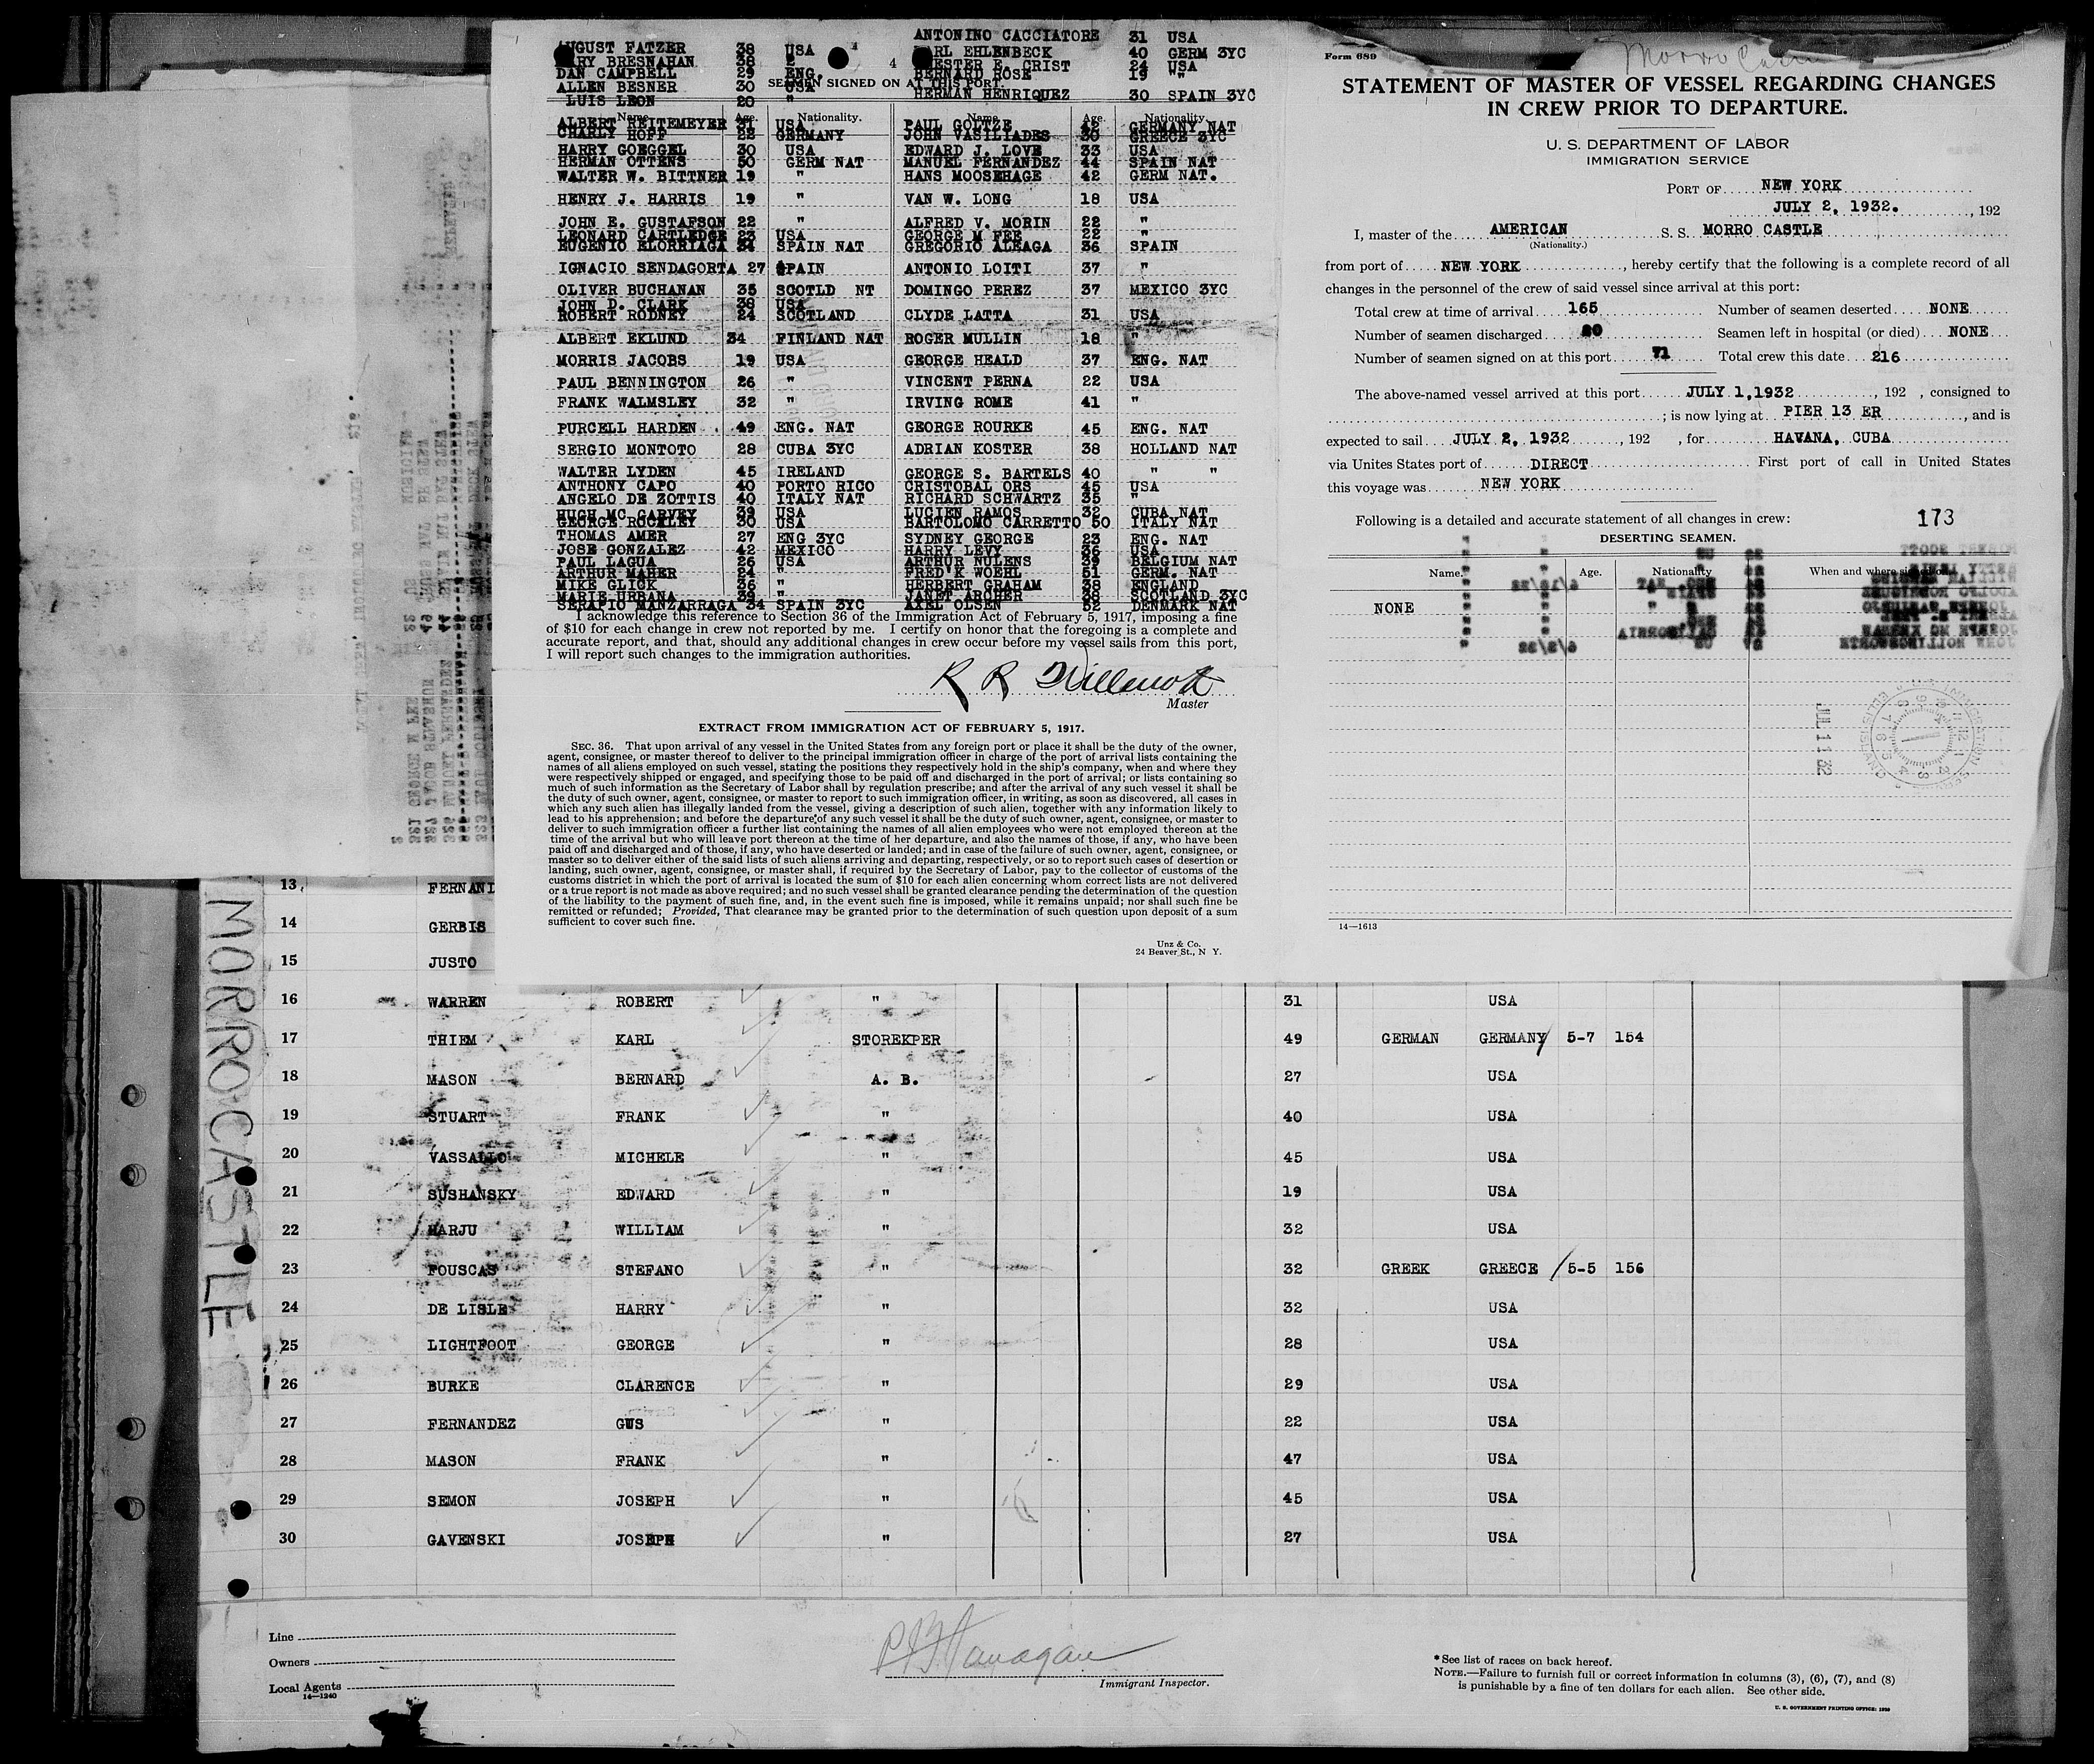 ANTONINO CACCIATORE 31 USA
UGUST FATZER 38 USA
RL EHLENBECK 40 GERM 3YC
RY BRESNAHAN 38
4
ESTER E. CRIST 24 USA
DAN CAMPBELL 29 ENG.
BERNARD ROSE 19 "
SEAMEN SIGNED ON AT THIS PORT.
ALLEN BESNER 30 USA
HERMAN HENRIQUEZ 30 SPAIN 3YC
LUIS LEON 20 "
Name. Age. Nationality. Name. Age. Nationality.
ALBERT REITEMEYER 31 USA PAUL GOLTZE 42 GERMANY NAT
CHARLY HOFF 22 GERMANY JOHN VASILIADES 30 GREECE 3YC
HARRY GOEGGEL 30 USA EDWARD J. LOVE 33 USA
HERMAN OTTENS 50 GERM NAT MANUEL FERNANDEZ 44 SPAIN NAT
WALTER W. BITTNER 19 " HANS MOOSEHAGE 42 GERM NAT.
HENRY J. HARRIS 19 " VAN W. LONG 18 USA
JOHN E. GUSTAFSON 22 " ALFRED V. MORIN 22 "
LEONARD CARTLEDGE 23 USA GEORGE M FEE 22 "
EUGENIO ELORRIAGA 34 SPAIN NAT GREGORIO ALEAGA 36 SPAIN
IGNACIO SENDAGORTA 27 SPAIN ANTONIO LOITI 37 "
OLIVER BUCHANAN 35 SCOTLD NT DOMINGO PEREZ 37 MEXICO 3YC
JOHN D. CLARK 38 USA
ROBERT RODNEY 24 SCOTLAND CLYDE LATTA 31 USA
ALBERT EKLUND 34 FINLAND NAT ROGER MULLIN 18 "
MORRIS JACOBS 19 USA GEORGE HEALD 37 ENG. NAT
PAUL BENNINGTON 26 " VINCENT PERNA 22 USA
FRANK WALMSLEY 32 " IRVING ROME 41 "
PURCELL HARDEN 49 ENG. NAT GEORGE ROURKE 45 ENG. NAT
SERGIO MONTOTO 28 CUBA 3YC ADRIAN KOSTER 38 HOLLAND NAT
WALTER LYDEN 45 IRELAND GEORGE S. BARTELS 40 " "
ANTHONY CAPO 40 PORTO RICO CRISTOBAL ORS 45 USA
ANGELO DE ZOTTIS 40 ITALY NAT RICHARD SCHWARTZ 35 "
HUGH MC GARVEY 39 USA LUCIEN RAMOS 32 CUBA NAT
GEORGE ROCKLEY 30 USA BARTOLOMO CARRETTO 50 ITALY NAT
THOMAS AMER 27 ENG 3YC SYDNEY GEORGE 23 ENG. NAT
JOSE GONZALEZ 42 MEXICO HARRY LEVY 36 USA
PAUL LAGUA 26 USA ARTHUR NULENS 39 BELGIUM NAT
ARTHUR MAHER 24 " FRED'K WOEHL 51 GERM. NAT
MIKE GLICK 36 " HERBERT GRAHAM 38 ENGLAND
MARIE URBANA 39 " JANET ARCHER 38 SCOTLAND 3YC
SERAPIO MANZARRAGA 34 SPAIN 3YC AXEL OLSEN 52 DENMARK NAT
I acknowledge this reference to Section 36 of the Immigration Act of February 5, 1917, imposing a fine
of $10 for each change in crew not reported by me. I certify on honor that the foregoing is a complete and
accurate report, and that, should any additional changes in crew occur before my vessel sails from this port,
I will report such changes to the immigration authorities.
R R Willmott
Master
EXTRACT FROM IMMIGRATION ACT OF FEBRUARY 5, 1917.
SEC. 36. That upon arrival of any vessel in the United States from any foreign port or place it shall be the duty of the owner,
agent, consignee, or master thereof to deliver to the principal immigration officer in charge of the port of arrival lists containing the
names of all aliens employed on such vessel, stating the positions they respectively hold in the ship's company, when and where they
were respectively shipped or engaged, and specifying those to be paid off and discharged in the port of arrival; or lists containing so
much of such information as the Secretary of Labor shall by regulation prescribe; and after the arrival of any such vessel it shall be
the duty of such owner, agent, consignee, or master to report to such immigration officer, in writing, as soon as discovered, all cases in
which any such alien has illegally landed from the vessel, giving a description of such alien, together with any information likely to
lead to his apprehension; and before the departure of any such vessel it shall be the duty of such owner, agent, consignee, or master to
deliver to such immigration officer a further list containing the names of all alien employees who were not employed thereon at the
time of the arrival but who will leave port thereon at the time of her departure, and also the names of those, if any, who have been
paid off and discharged and of those, if any, who have deserted or landed; and in case of the failure of such owner, agent, consignee, or
master so to deliver either of the said lists of such aliens arriving and departing, respectively, or so to report such cases of desertion or
landing, such owner, agent, consignee, or master shall, if required by the Secretary of Labor, pay to the collector of customs of the
customs district in which the port of arrival is located the sum of $10 for each alien concerning whom correct lists are not delivered
or a true report is not made as above required; and no such vessel shall be granted clearance pending the determination of the question
of the liability to the payment of such fine, and, in the event such fine is imposed, while it remains unpaid; nor shall such fine be
remitted or refunded; Provided, That clearance may be granted prior to the determination of such question upon deposit of a sum
sufficient to cover such fine.
Unz & Co.
24 Beaver St., N Y.
Form 689
Morro Castle
STATEMENT OF MASTER OF VESSEL REGARDING CHANGES
IN CREW PRIOR TO DEPARTURE.
U. S. DEPARTMENT OF LABOR
IMMIGRATION SERVICE
PORT OF NEW YORK
JULY 2, 1932. , 192
I, master of the AMERICAN S. S. MORRO CASTLE
(Nationality.)
from port of NEW YORK , hereby certify that the following is a complete record of all
changes in the personnel of the crew of said vessel since arrival at this port:
Total crew at time of arrival 165 Number of seamen deserted NONE
Number of seamen discharged 20 Seamen left in hospital (or died) NONE
Number of seamen signed on at this port 71 Total crew this date 216
The above-named vessel arrived at this port JULY 1, 1932 , 192 , consigned to
; is now lying at PIER 13 ER , and is
expected to sail JULY 2, 1932 , 192 , for HAVANA, CUBA
via Unites States port of DIRECT First port of call in United States
this voyage was NEW YORK
Following is a detailed and accurate statement of all changes in crew: 173
DESERTING SEAMEN.
Name. Age. Nationality When and where signed on.
NONE
JUL 11 32
14—1613
321 GEORGE M FEE 22 US
327 JACOB
326 MANUEL FERNANDEZ 44
MORRO CASTLE
13 FERNANI
14 GERBIS
15 JUSTO
16 WARREN ROBERT " 31 USA
17 THIEM KARL STOREKPER 49 GERMAN GERMANY 5-7 154
18 MASON BERNARD A. B. 27 USA
19 STUART FRANK " 40 USA
20 VASSALLO MICHELE " 45 USA
21 SUSHANSKY EDWARD " 19 USA
22 HARJU WILLIAM " 32 USA
23 FOUSCAS STEFANO " 32 GREEK GREECE 5-5 156
24 DE LISLE HARRY " 32 USA
25 LIGHTFOOT GEORGE " 28 USA
26 BURKE CLARENCE " 29 USA
27 FERNANDEZ GUS " 22 USA
28 MASON FRANK " 47 USA
29 SEMON JOSEPH " 45 USA
30 GAVENSKI JOSEPH " 27 USA
Line
Owners
Local Agents
14—1240
P J Flanagan
Immigrant Inspector.
* See list of races on back hereof.
NOTE.—Failure to furnish full or correct information in columns (3), (6), (7), and (8)
is punishable by a fine of ten dollars for each alien. See other side.
U. S. GOVERNMENT PRINTING OFFICE: 1930